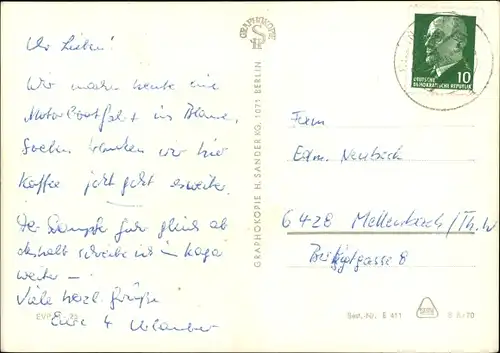 Ihr Lieben!
Wir machen heute eine
Motorbootfahrt ins Blaue,
Soeben tranken wir hier
Kaffee jetzt geht es weiter.
Der Dampfer fährt gleich ab
deshalb schreibe ich im
weiter —
Viele herzl. Grüße
Eure 4 Urlauber
EVP
GRAPHOKOPIE
GRAPHOKOPIE H. SANDER KG. 1071 BERLIN
DEUTSCHE
DEMOKRATISCHE REPUBLIK
10
Fam
Edm. Neubich
6428 Mellenbach/Th. W
gasse 8
Best.-Nr. E 411